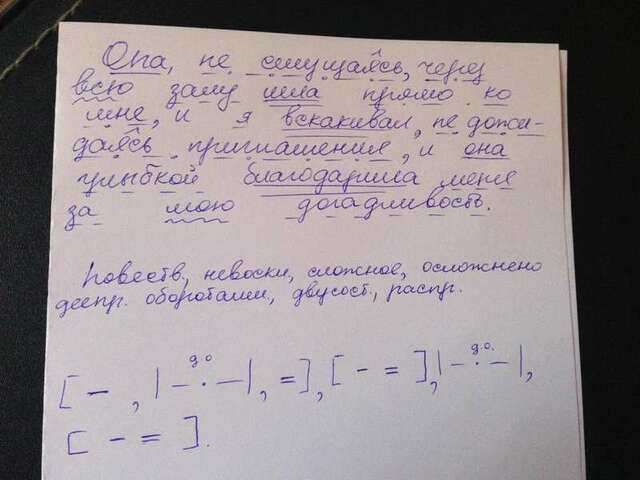 Она, не смущаясь, через
всю залу шла прямо ко
мне, и я вскакивал, не дожи-
даясь приглашения, и она
улыбкой благодарила меня
за мою догадливость.
Повеств., невоскл, сложное, осложнено
деепр. оборотами, двусост., распр.
д.о д.о.
[ — , | — · — | , = ] , [ - = ] , | — · — | ,
[ - = ] .